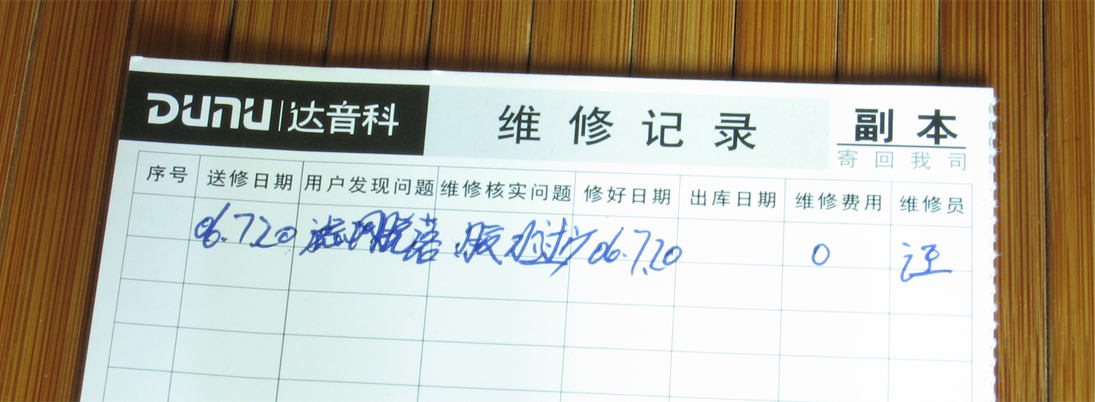 DUNU 达音科 维修记录 副本
寄回我司
序号 送修日期 用户发现问题 维修核实问题 修好日期 出库日期 维修费用 维修员
06.7.20 滤网脱落 胶水过少 06.7.20 0